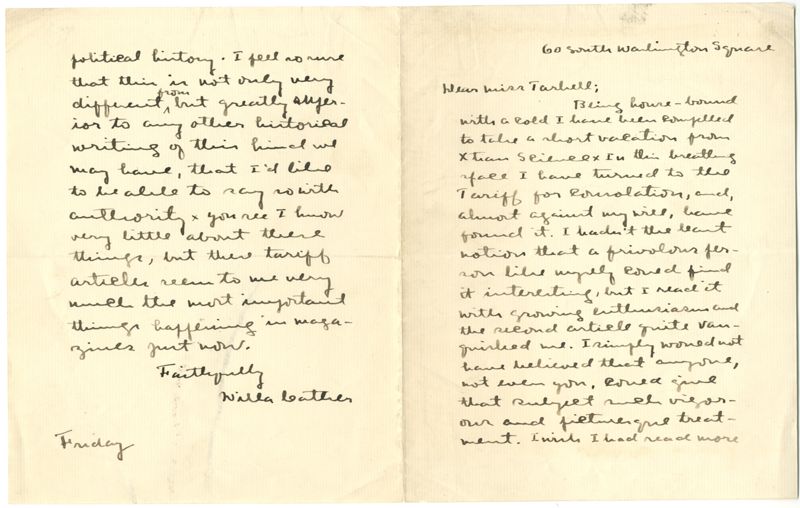 60 South Washington Square
Dear Miss Tarbell;
Being house-bound
with a cold I have been compelled
to take a short vacation from
Xtian Science x In this breathing
space I have turned to the
Tariff for consolation, and,
almost against my will, have
found it. I hadn't the least
notion that a frivolous per-
son like myself could find
it interesting, but I read it
with growing enthusiasm and
the second article quite van-
quished me. I simply would not
have believed that anyone,
not even you, could give
that subject such vigor-
ous and picturesque treat-
ment. I wish I had read more
political history. I feel so sure
that this is not only very
different from, but greatly super-
ior to any other historical
writing of this kind we
may have, that I'd like
to be able to say so with
authority x you see I know
very little about these
things, but these tariff
articles seem to me very
much the most important
things happening in maga-
zines just now.
Faithfully
Willa Cather
Friday